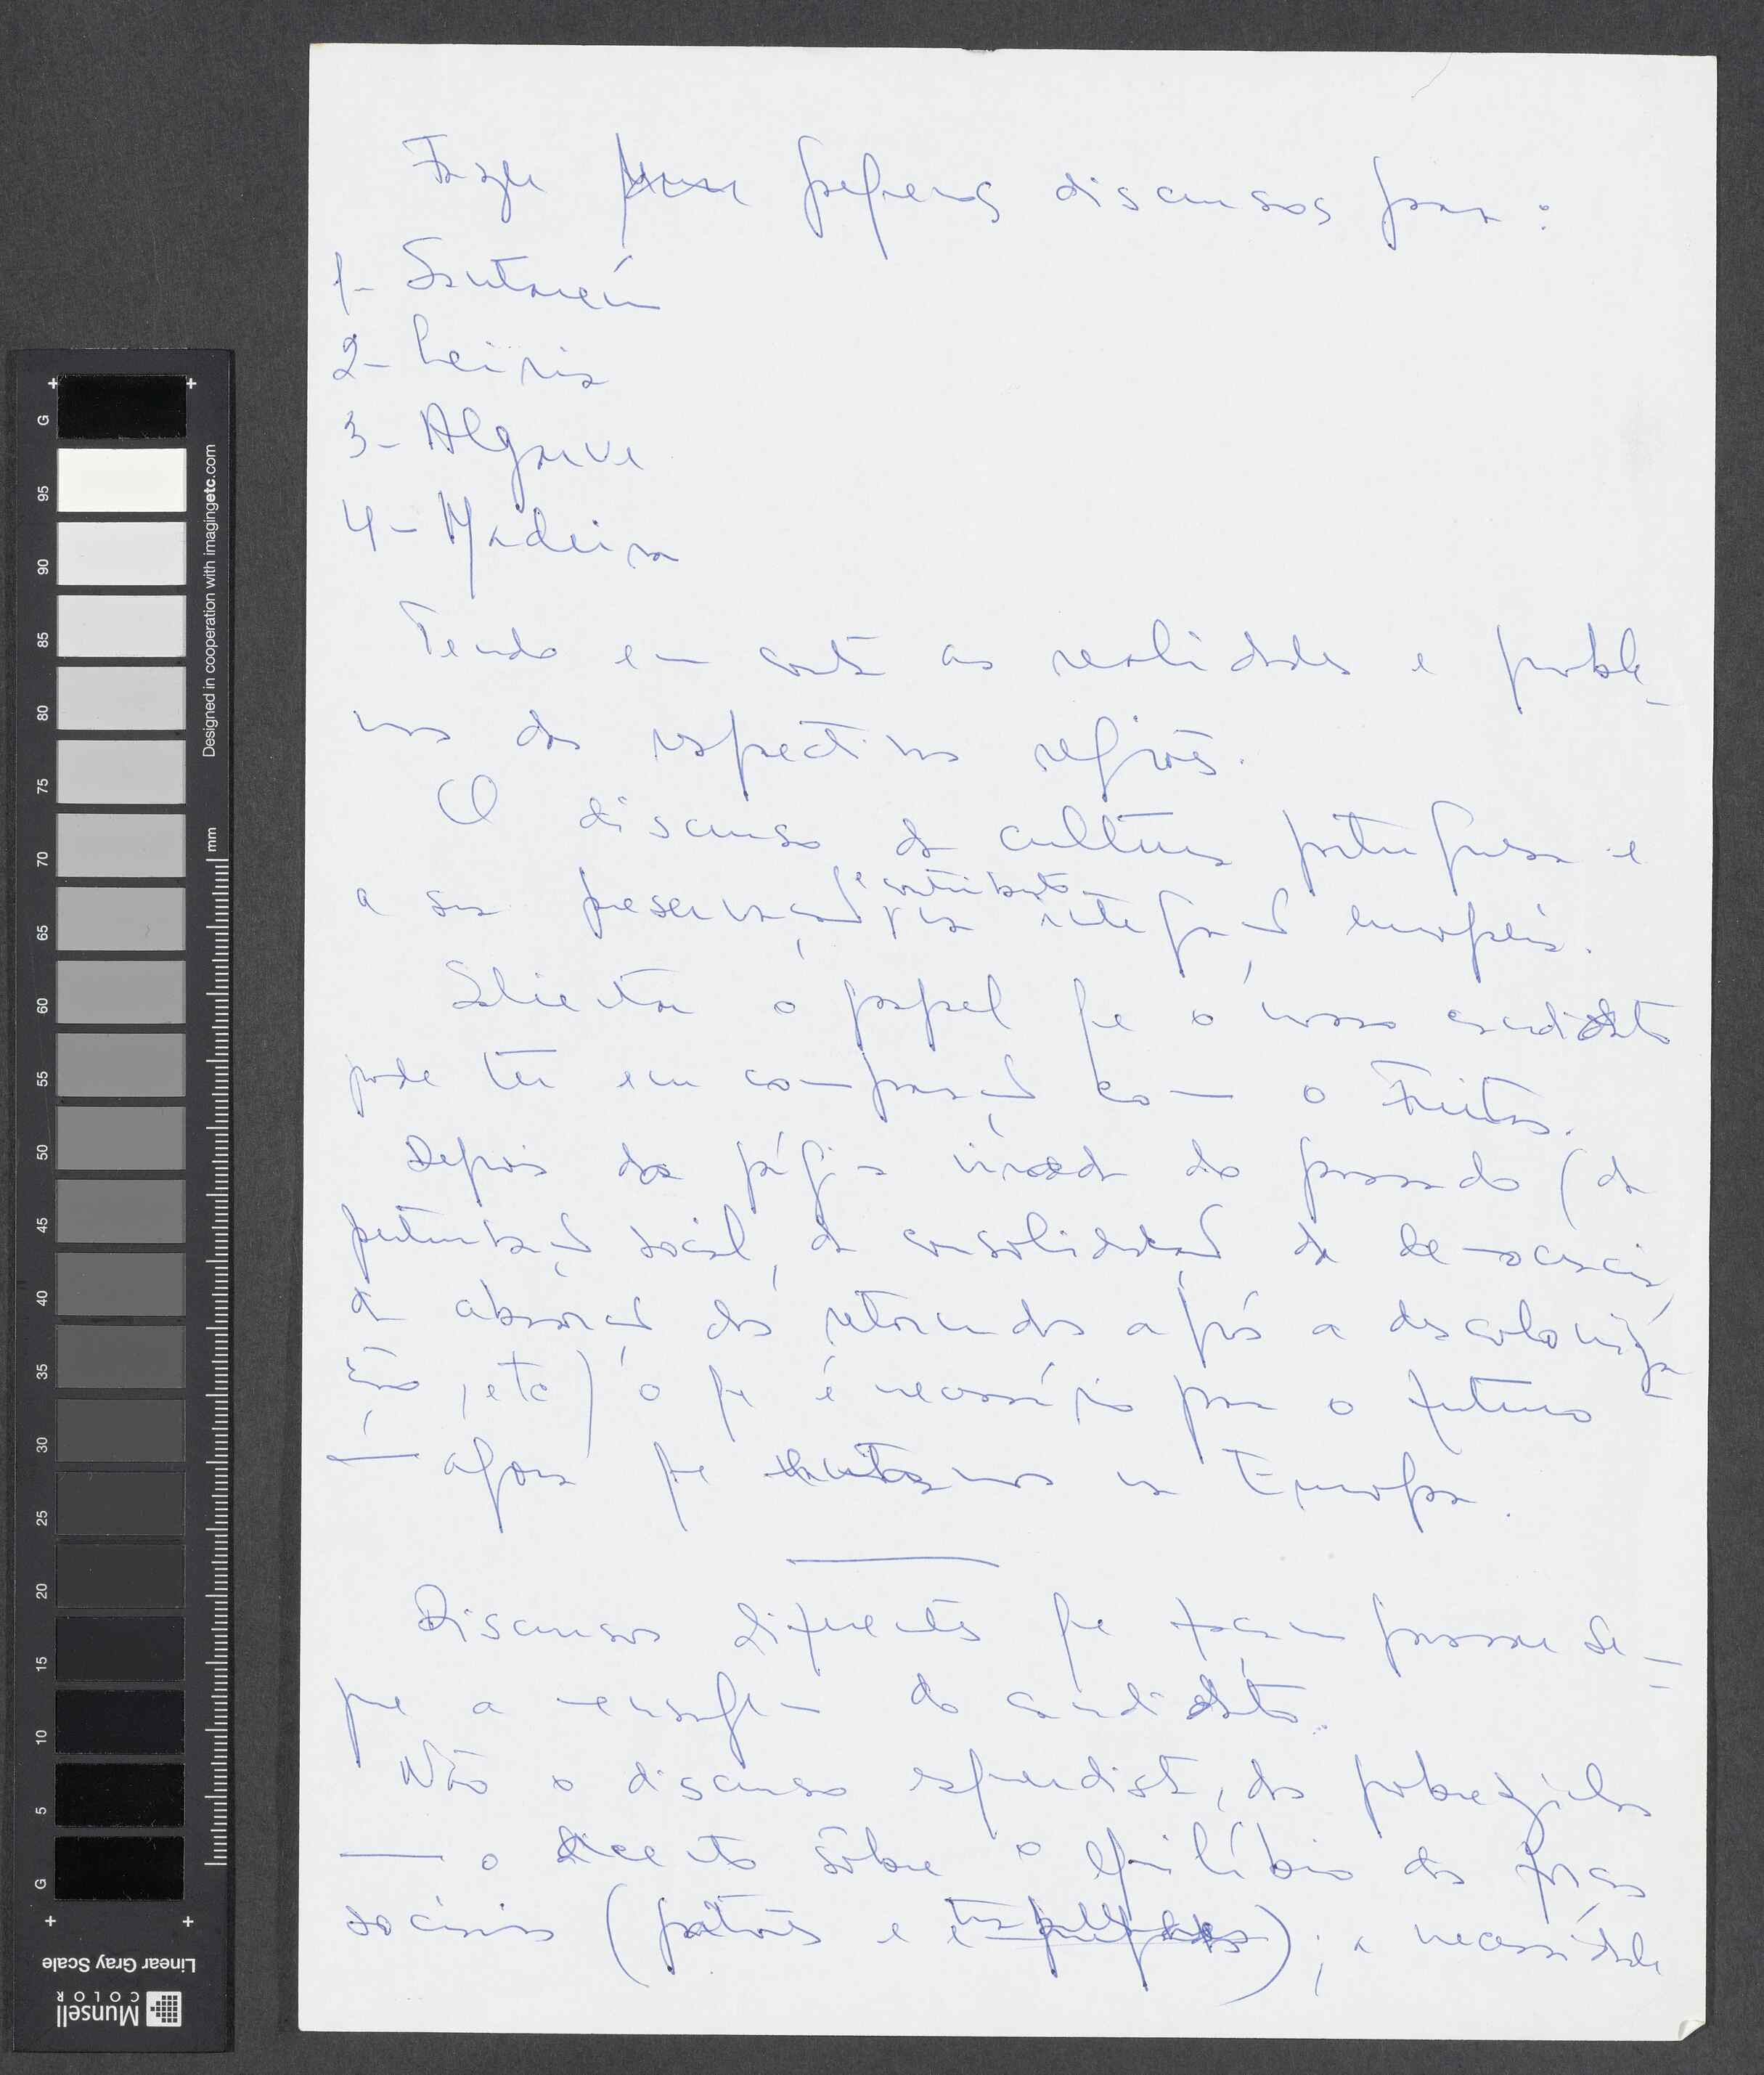 Fazer pequenos discursos para:
1- Santarém
2- Leiria
3- Algarve
4- Madeira
Tendo em conta as realidades e proble-
mas das respectivas regiões.
O discurso da cultura portuguesa e
a sua preservação e contributo na integração europeia.
Salientar o papel que o nosso candidato
pode ter em comparação com o Freitas.
Depois da página virada do passado (da
perturbação social, da consolidação da democracia,
da absorção dos retornados após a descoloniza-
ção, etc) o que é necessário para o futuro
— agora que entramos na Europa.
Discursos diferentes que façam passar sem-
pre a mensagem do candidato.
Não o discurso esquerdista, dos pobrezinhos
— o acento sôbre o equilíbrio das forças
sociais (patrões e ); a necessidade
G 95 90 85 80 75 70 65 60 55 50 45 40 35 30 25 20 15 10 5 G
Designed in cooperation with imagingetc.com
mm
Linear Gray Scale
Munsell
COLOR